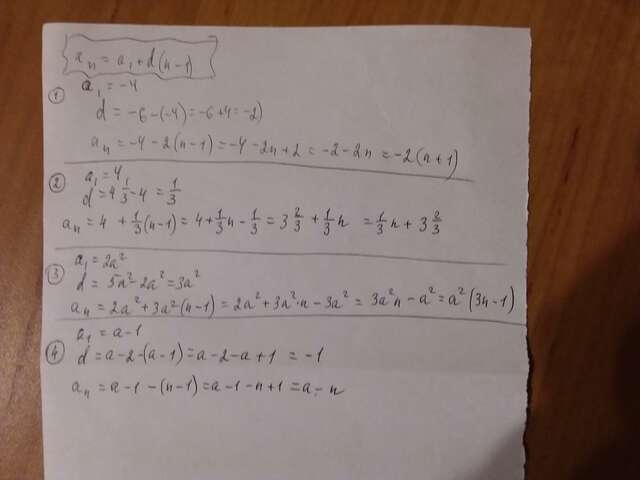 aₙ = a₁ + d(n-1)
① a₁ = -4
d = -6 - (-4) = -6 + 4 = -2)
aₙ = -4 - 2(n-1) = -4 - 2n + 2 = -2 - 2n = -2(n+1)
② a₁ = 4,
d = 4 1/3 - 4 = 1/3
aₙ = 4 + 1/3(n-1) = 4 + 1/3n - 1/3 = 3 2/3 + 1/3n = 1/3n + 3 2/3
③ a₁ = 2a²
d = 5a² - 2a² = 3a²
aₙ = 2a² + 3a²(n-1) = 2a² + 3a²·n - 3a² = 3a²n - a² = a²(3n-1)
④ a₁ = a-1
d = a-2-(a-1) = a-2-a+1 = -1
aₙ = a-1-(n-1) = a-1-n+1 = a-n